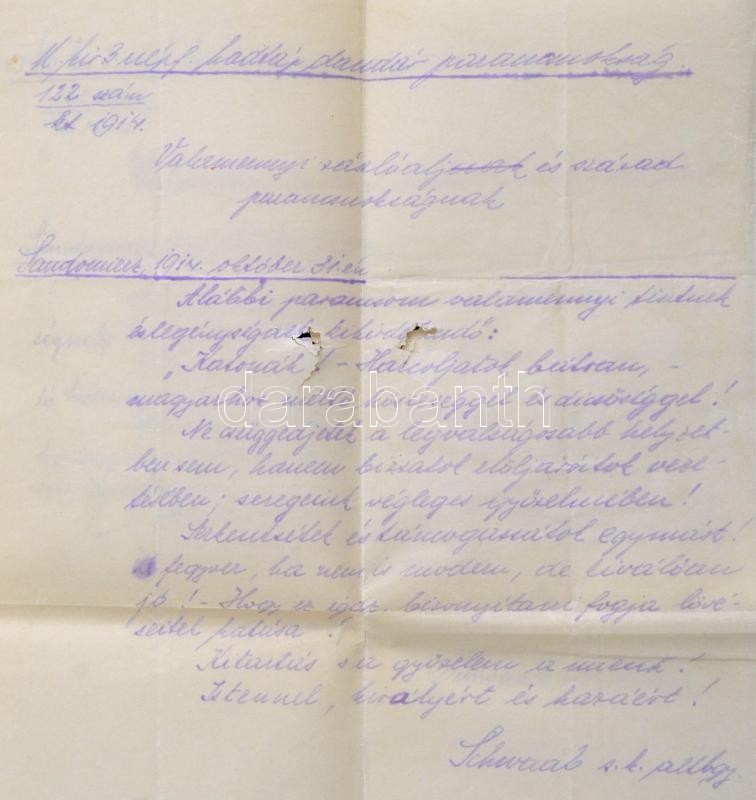 M. kir. 3. népf. hadtáp dandár parancsnokság.
122 szám
kt 1914.
Valamennyi zászlóalj és század
parancsnokságnak
Sandomierz, 1914. október 31.-én
Alábbi parancsom valamennyi tisztnek
és legénységnek kihirdetendő:
„Katonák! - Harcoljatok bátran, -
magyarhoz méltó hűséggel és dicsőséggel!
Ne csüggedjetek a legválságosabb helyzet-
ben sem, hanem bízzatok elöljáróitok veze-
tésében; seregeink végleges győzelmében!
Serkentsétek és támogassátok egymást!
A fegyver, ha nem is modern, de kiválóan
jó! - Hogy ez igaz, bizonyítani fogja lövé-
seitek hatása!
Kitartás s a győzelem a mienk!
Istennel, királyért és hazáért!
Schwaab s. k. altbgy.
darabanth